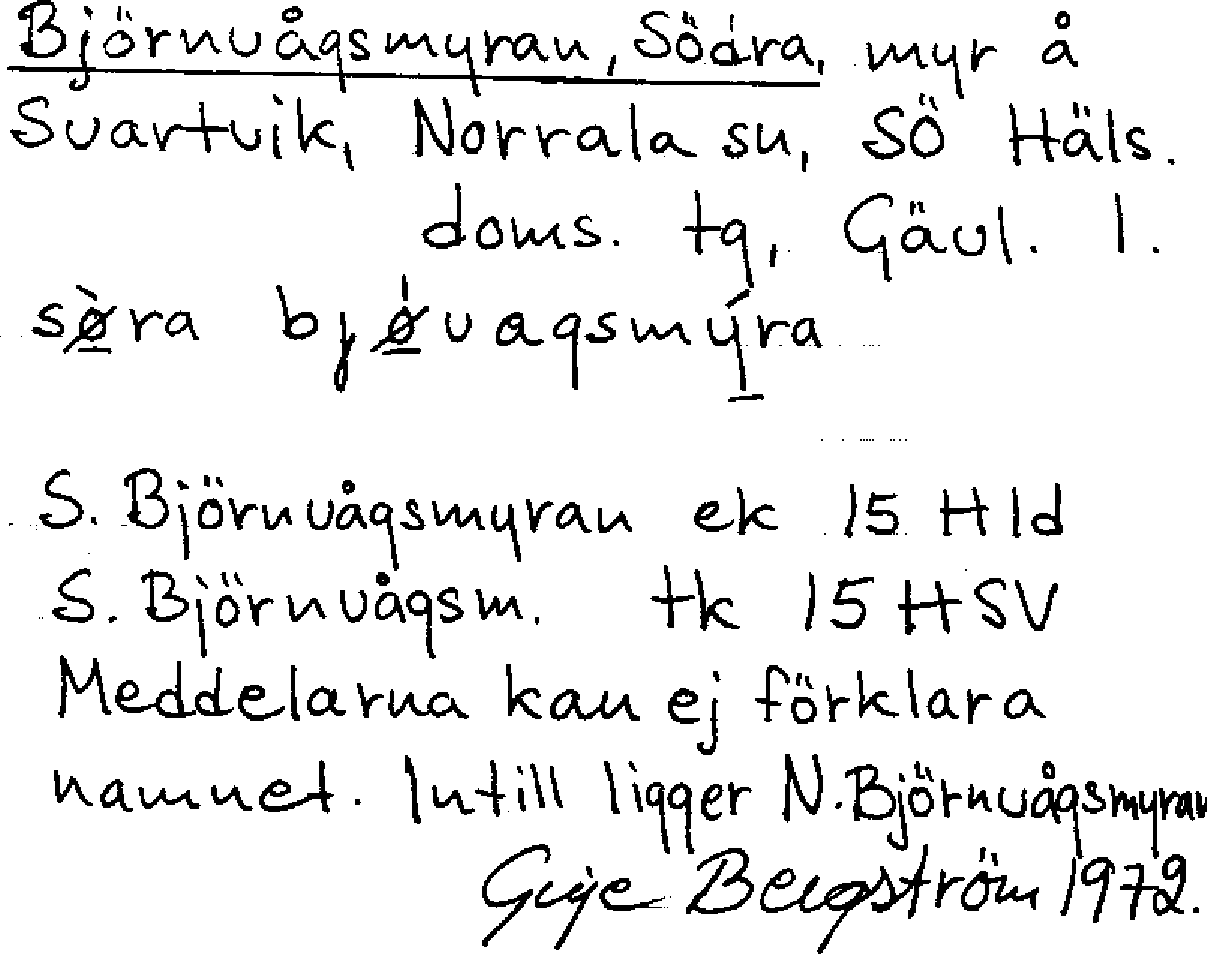 Björnvågsmyran, Södra, myr å
Svartvik, Norrala sn, SÖ Häls.
doms. tg, Gävl. l.
sø̀ra bjǿvagsmýra
S. Björnvågsmyran ek 15 H1d
S. Björnvågsm. tk 15 H SV
Meddelarna kan ej förklara
namnet. Intill ligger N. Björnvågsmyran
Bergström 1972.